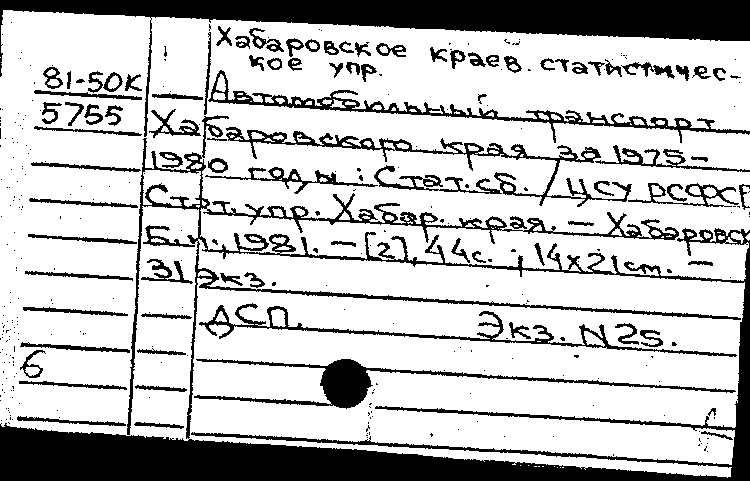 Хабаровское краев. статистичес-
кое упр.
81-50К
Автомобильный транспорт
5755
Хабаровского края за 1975-
1980 годы : Стат. сб. / ЦСУ РСФСР
Стат. упр. Хабар. края. — Хабаровск
Б.и., 1981. — [2], 44с. ; 14х21см. —
31 экз.
ДСП. Экз. N 25.
6